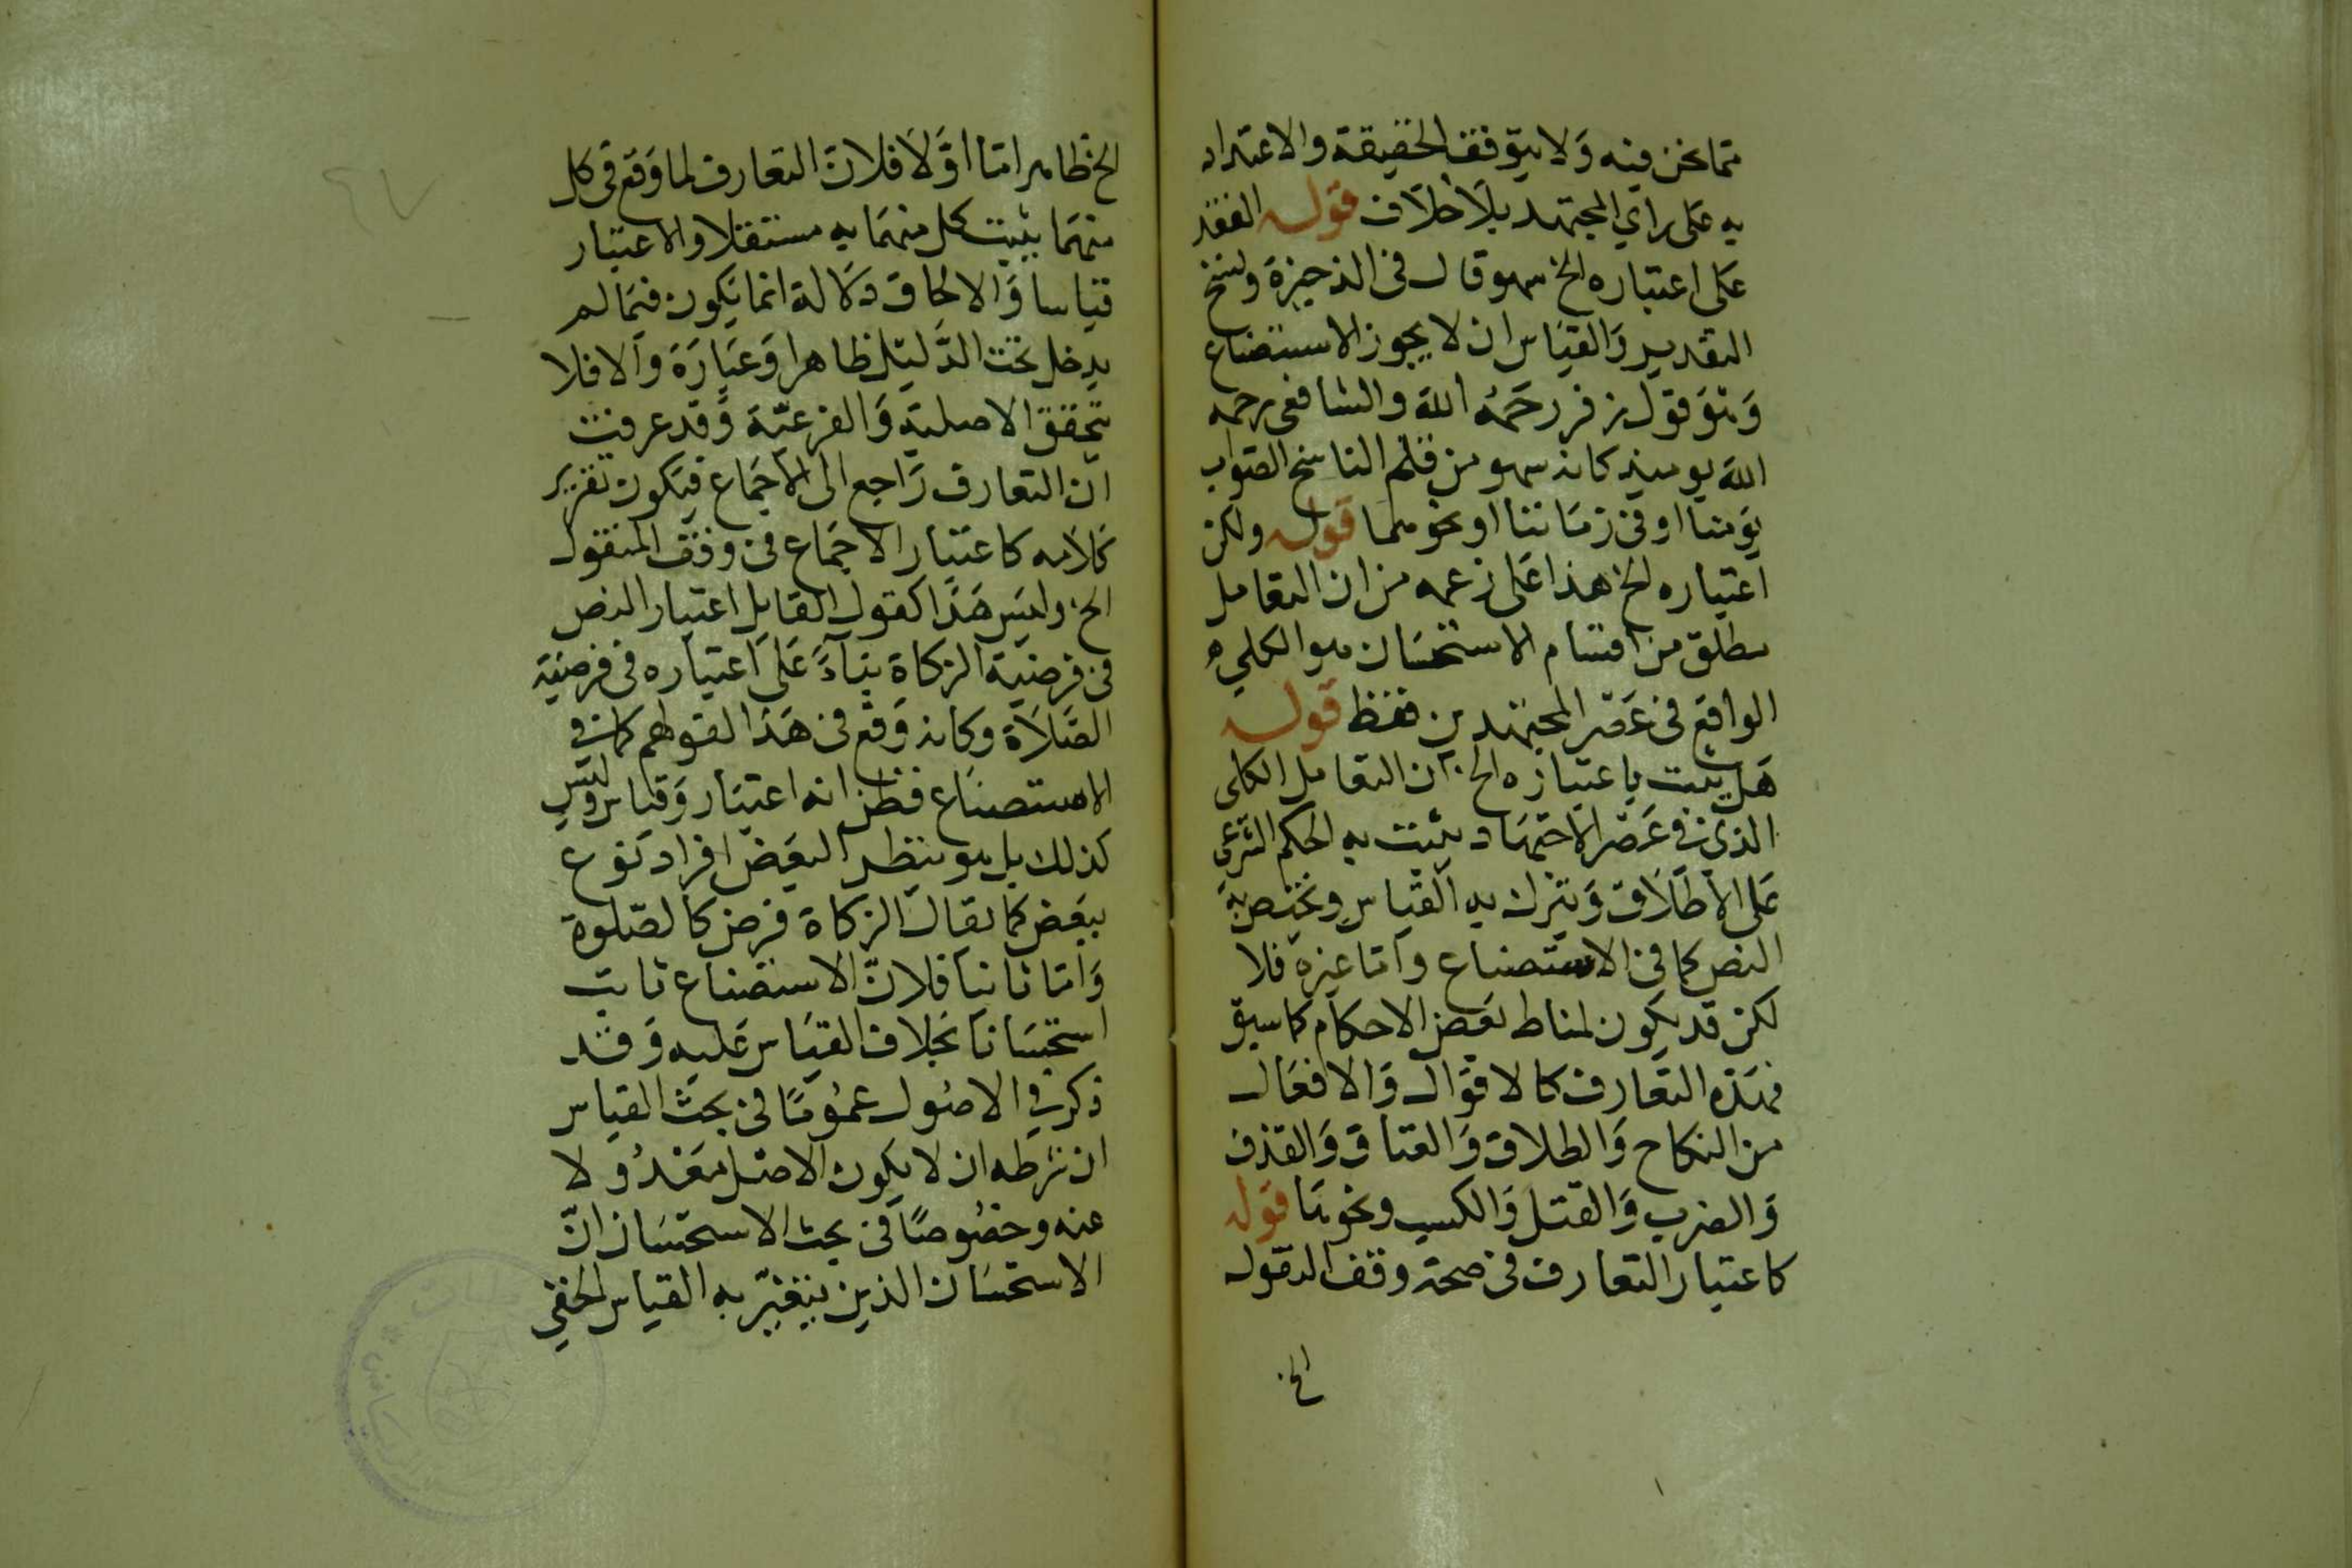 مما نحن فيه وَلا يتوقف الحقيقة والاعتداد
به عَلى راي المجتهد بلاَ خلاَف قوله الفقد
عَلى اعتباره الخ سهو قال في الذخيرة ولنسخ
التقدير وَالقيَاس ان لا يجوز الاستصناع
وَهوَ قول زفر رحَمهُ اللهَ والشافعى رحمه
اللهَ يوميذ كانه سهو من قلم الناسخ الصواب
يَومنا او فى زمَاننا او نحوهما قوله ولكن
اعتباره الخ هذا عَلى زعمه من ان التعامل
مطلق من اقسام الاستحسَان هو الكلي
الواقع فى عَصر المجتهدين فقط قوله
هَل يثبت باعتباره الخ ان التعامل الكلى
الذي فى عَصر الاجتهَاد يثبت به الحكم الشرعى
عَلى الاِطلاَق وَيترك به القيَاس ويخص به
النص كما فى الاستصناع وامّا غيره فلا
لكن قد يكون لمناط بعَض الاحكام كما سبق
فهَذه التعارف كالاقوَال وَالافعَال
من النكاح وَالطلاق وَالعتاق وَالقذف
وَالضرب وَالقتل وَالكسب ونحوهَا قوله
كاعتبار التعارف فى صحة وقف المنقول
الخ
الخ ظاهر امّا اوَّلاَ فلانّ التعارف لما وَقع فى كل
منهمَا يثبت كل منهمَا به مستقلا والاعتبار
قياسا وَالالحَاق دَلالة انما يَكون فيمَا لم
يدخل تحت الدَّليل ظاهرا وَعبَارَة وَالا فلا
يتحقق الاصلية وَالفرعيّة وَقد عرفت
ان التعارف رَاجع الى الاجمَاع فيَكون تقرير
كلاَمه كاعتبار الاجمَاع فى وقف المنقول
الخ وليسَ هَذا كقول القايل اعتبار النص
فى فرضيَة الزكاة بناءً عَلى اعتباره فى فرضية
الصَّلاَة وكانه وَقع فى هَذا لقولهم كما فى
الاستصنَاع فظن انه اعتبَار وَقياس وليس
كذلك بل هو ينظر البعَض افراد نوع
ببعَض كما يقال الزكاة فرض كالصّلوة
وَامّا ثانيا فلانّ الاستصناع ثابت
استحسَانا بخلاف القيَاس عَليه وَقد
ذكر فى الاصُول عمومًا فى بحث القياس
ان شرطه ان لا يكون الاصل معَدُولا
عنه وخصُوصًا فى بحث الاستحسَان انّ
الاستحسَان الذين يتغيّر به القياس الخفي